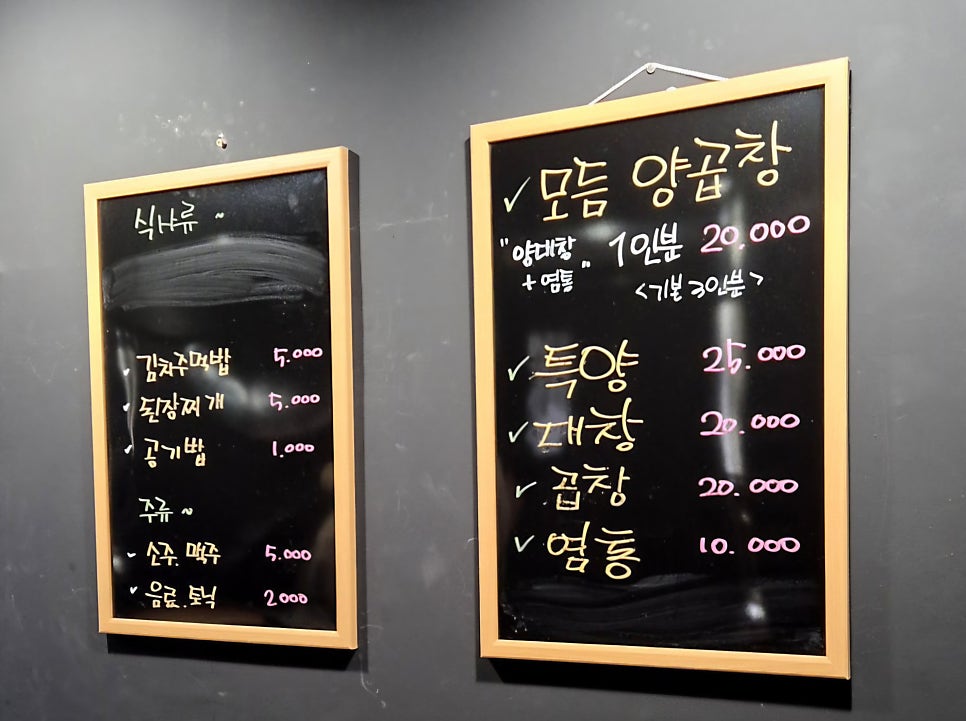 식사류 ~
김치주먹밥 5.000
된장찌개 5.000
공기밥 1.000
주류 ~
소주. 맥주 5.000
음료.토닉 2000
✓ 모듬 양곱창
"양대창 + 염통" 1인분 20,000
<기본 3인분>
✓ 특양 25.000
✓ 대창 20.000
✓ 곱창 20.000
✓ 염통 10.000